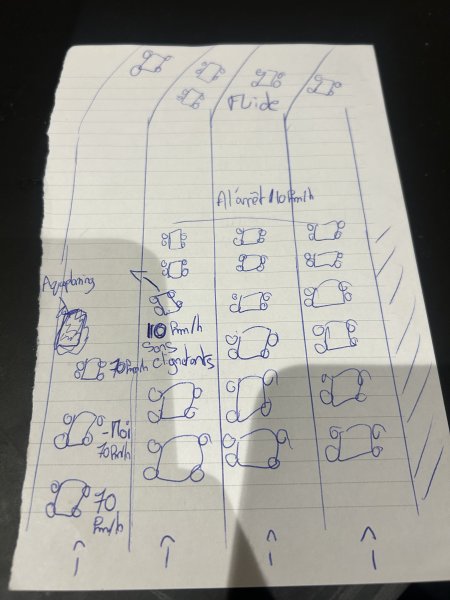 Fluide
A l'arrêt/10 km/h
Aquaplaning
10 km/h
sans
clignotants
70 km/h
- Moi
70 km/h
70
km/h